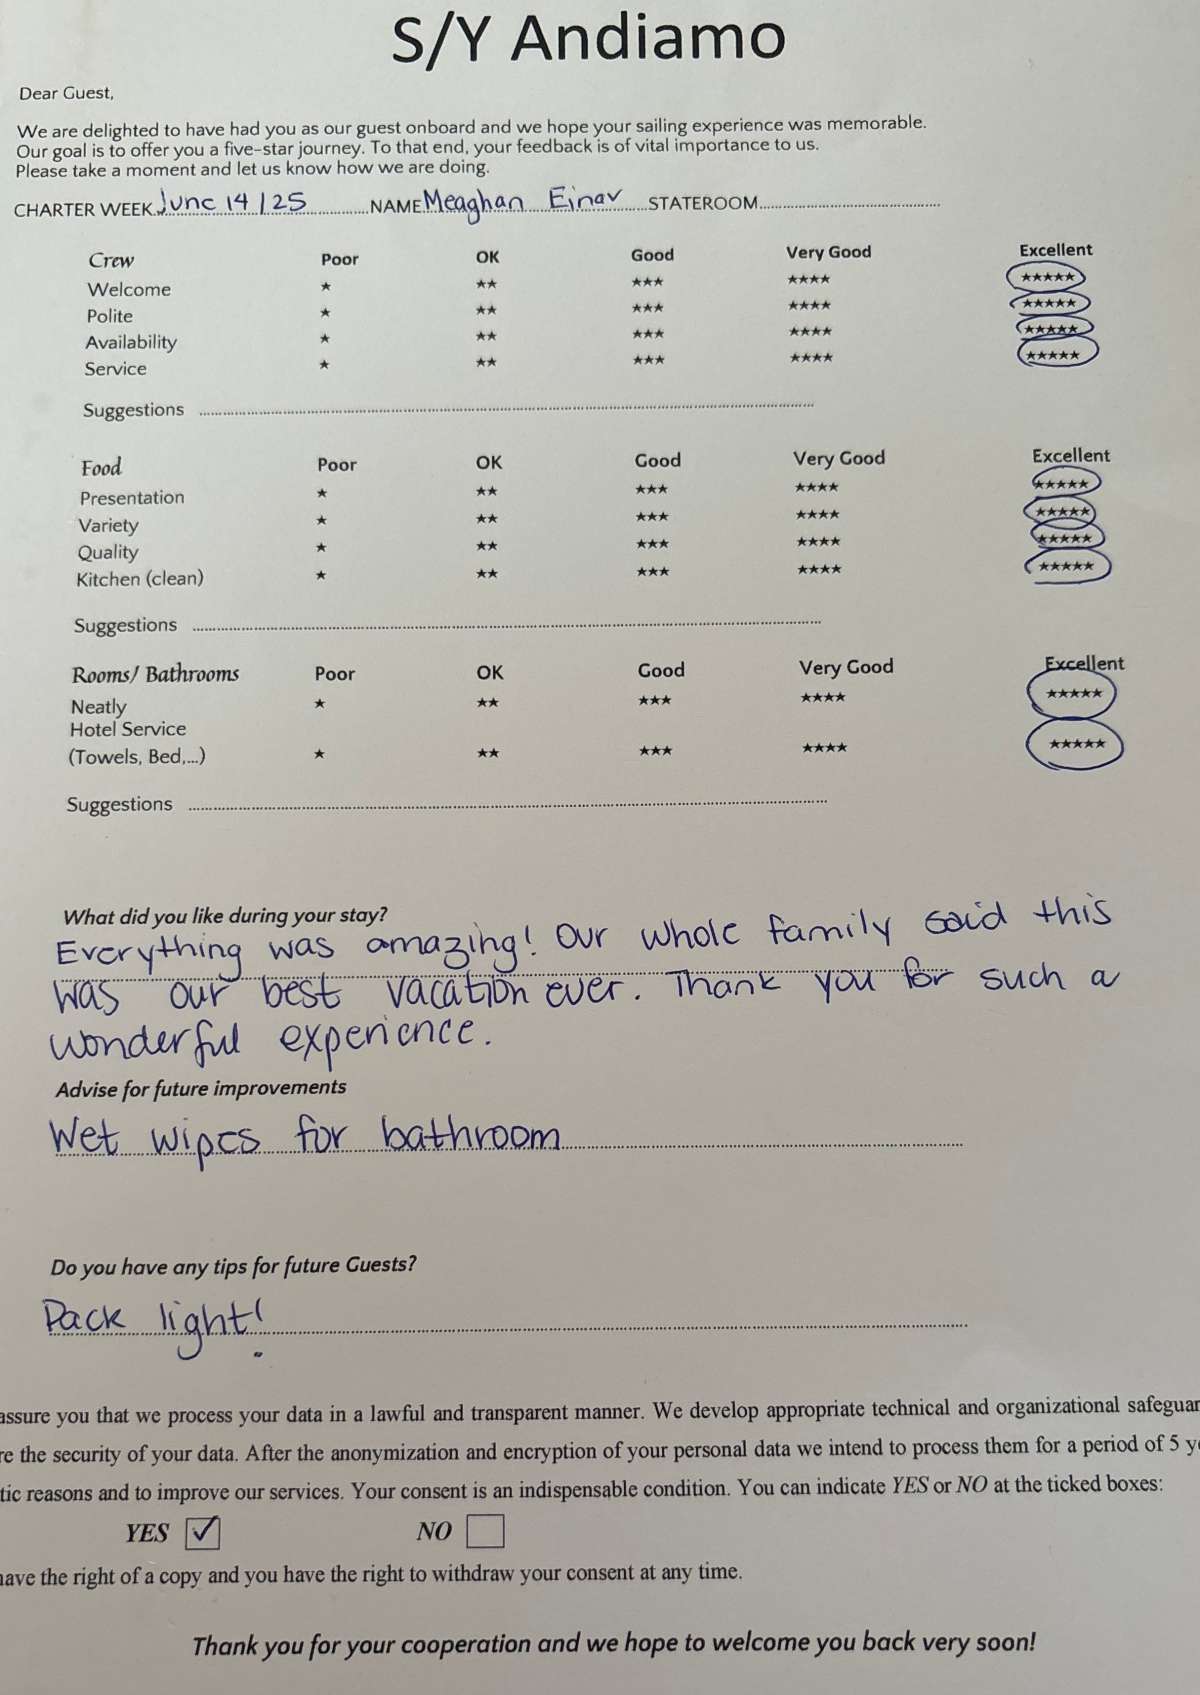 S/Y Andiamo
Dear Guest,
We are delighted to have had you as our guest onboard and we hope your sailing experience was memorable.
Our goal is to offer you a five-star journey. To that end, your feedback is of vital importance to us.
Please take a moment and let us know how we are doing.
CHARTER WEEK June 14/25 NAME Meaghan Einav STATEROOM
Crew Poor OK Good Very Good Excellent
Welcome ★ ★★ ★★★ ★★★★ ★★★★★
Polite ★ ★★ ★★★ ★★★★ ★★★★★
Availability ★ ★★ ★★★ ★★★★ ★★★★★
Service ★ ★★ ★★★ ★★★★ ★★★★★
Suggestions
Food Poor OK Good Very Good Excellent
Presentation ★ ★★ ★★★ ★★★★ ★★★★★
Variety ★ ★★ ★★★ ★★★★ ★★★★★
Quality ★ ★★ ★★★ ★★★★ ★★★★★
Kitchen (clean) ★ ★★ ★★★ ★★★★ ★★★★★
Suggestions
Rooms/ Bathrooms Poor OK Good Very Good Excellent
Neatly ★ ★★ ★★★ ★★★★ ★★★★★
Hotel Service
(Towels, Bed,...) ★ ★★ ★★★ ★★★★ ★★★★★
Suggestions
What did you like during your stay?
Everything was amazing! Our whole family said this
was our best vacation ever. Thank you for such a
wonderful experience.
Advise for future improvements
Wet wipes for bathroom
Do you have any tips for future Guests?
Pack light!
assure you that we process your data in a lawful and transparent manner. We develop appropriate technical and organizational safeguar
re the security of your data. After the anonymization and encryption of your personal data we intend to process them for a period of 5 y
tic reasons and to improve our services. Your consent is an indispensable condition. You can indicate YES or NO at the ticked boxes:
YES ✓ NO
have the right of a copy and you have the right to withdraw your consent at any time.
Thank you for your cooperation and we hope to welcome you back very soon!